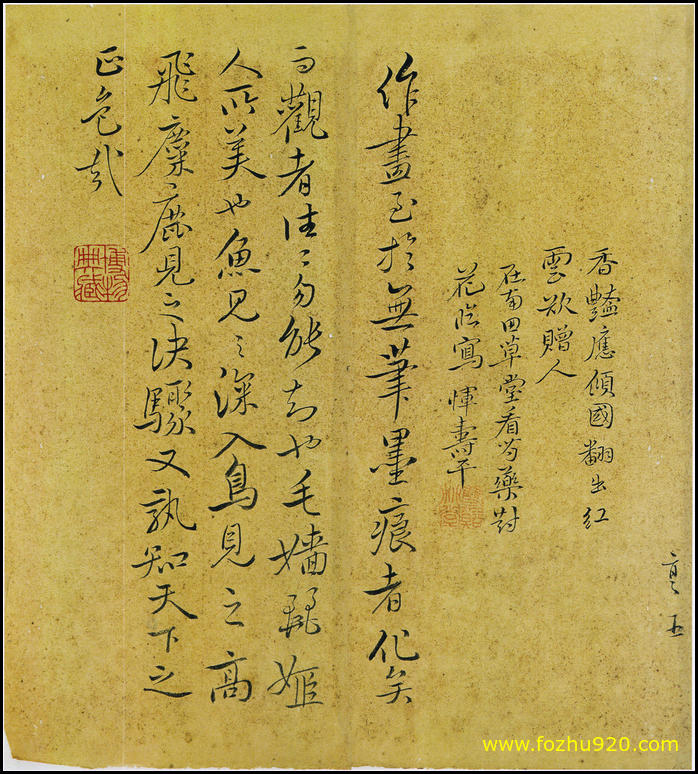 香豔應傾國翻出紅
雲欲贈人
在南田草堂看芍藥對
花臨寫 惲壽平
作畫至於無筆墨痕者化矣
而觀者往〻勿能知也毛嬙麗姬
人所美也魚見之深入鳥見之高
飛麋鹿見之决驟又孰知天下之
正色哉
博物
典藏
www.fozhu920.com